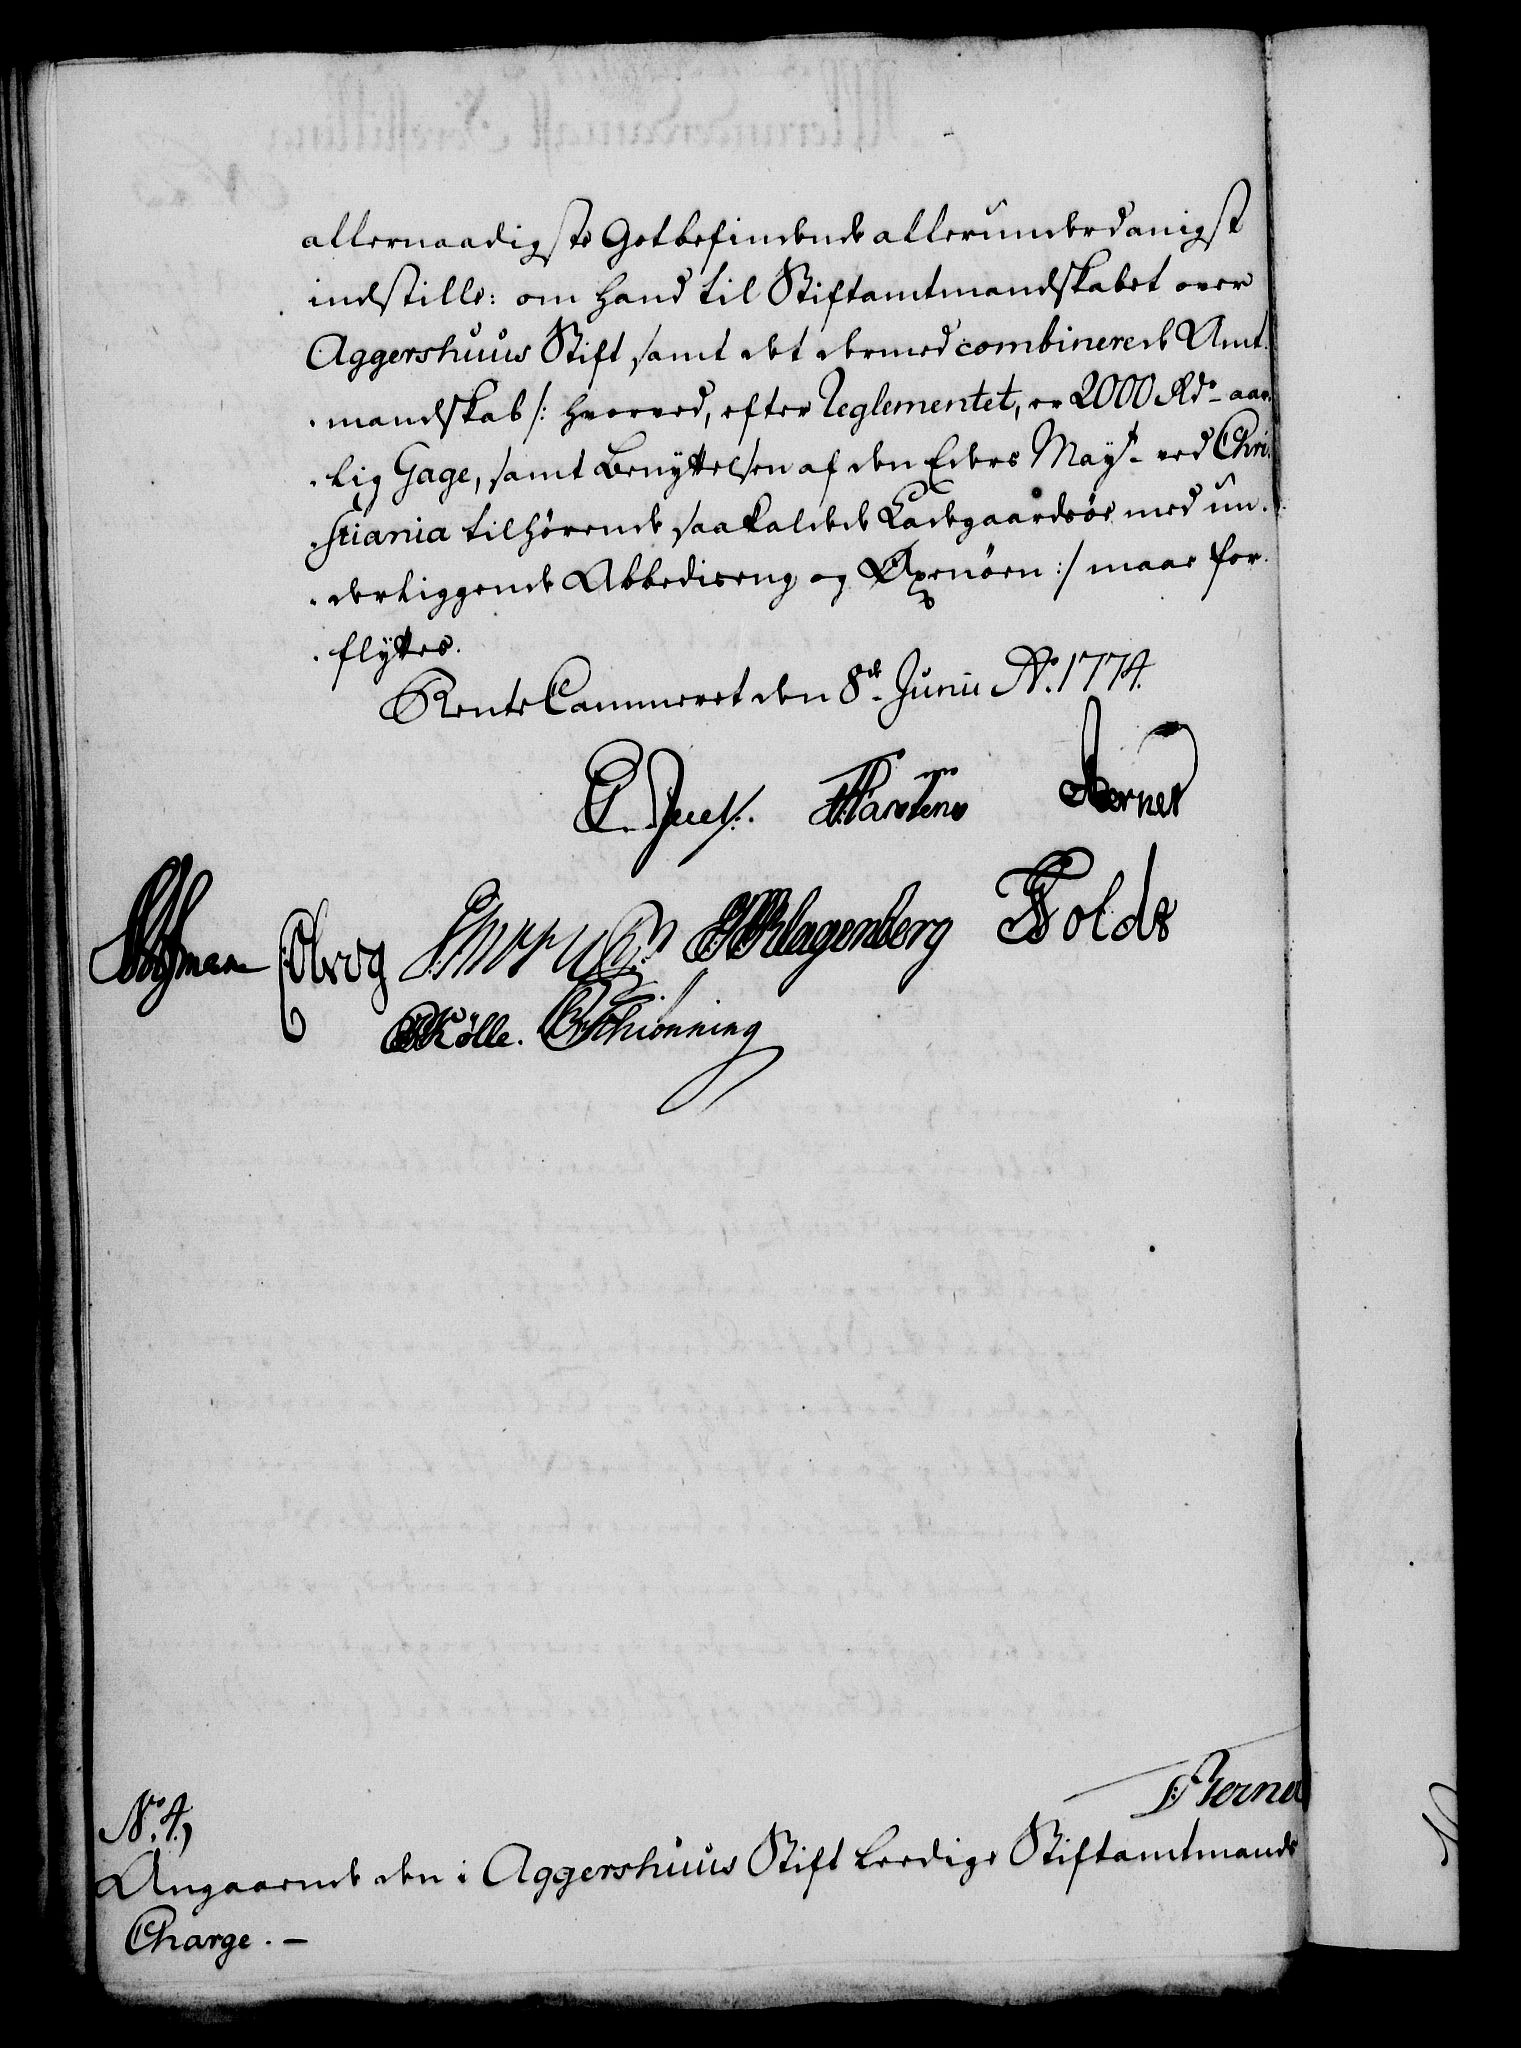 allernaadigste Gotbefindende allerunderdanigst
indstille: om hand til Stiftamtmandskabet over
Aggershuus Stift, samt det dermed combinerede Amt-
-mandskab /: hvorved, efter Reglementet, er 2000 Rdr. aar-
-lig Gage, samt Benyttelsen af den Eders Mayt. ved Chri-
-stiania tilhørende saakaldede Ladegaardsøe med un-
-derliggende Abbediseng og Oxenøen :/ maae for-
-flyttes.
RenteCammeret den 8de Junii Ao. 1774.
Juel. Berner
Klagenberg Holde
Kølle. Schionning
Berner
No. 4,
Angaaende den i Aggershuus Stift leedige Stiftamtmands
Charge. -